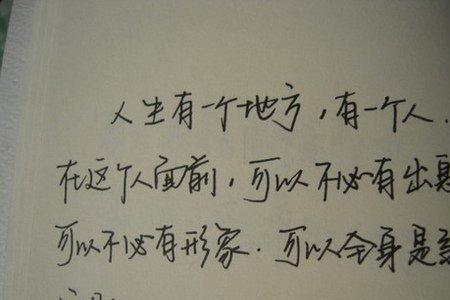 人生有一个地方，有一个人.
在这个人面前，可以不必有出息
可以不必有形象.可以全身是